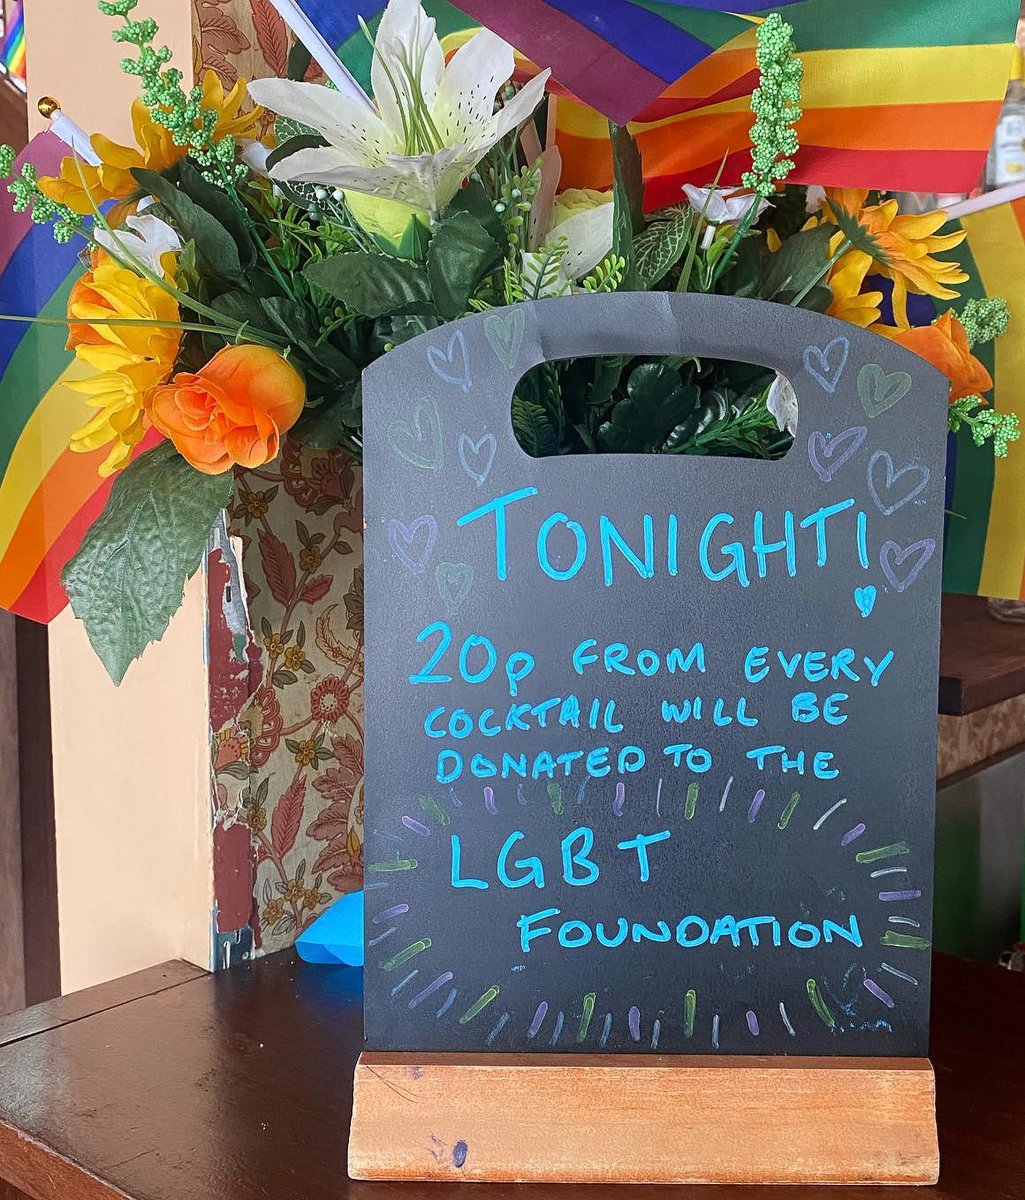 TONIGHT!
20p FROM EVERY
COCKTAIL WILL BE
DONATED TO THE
LGBT
FOUNDATION